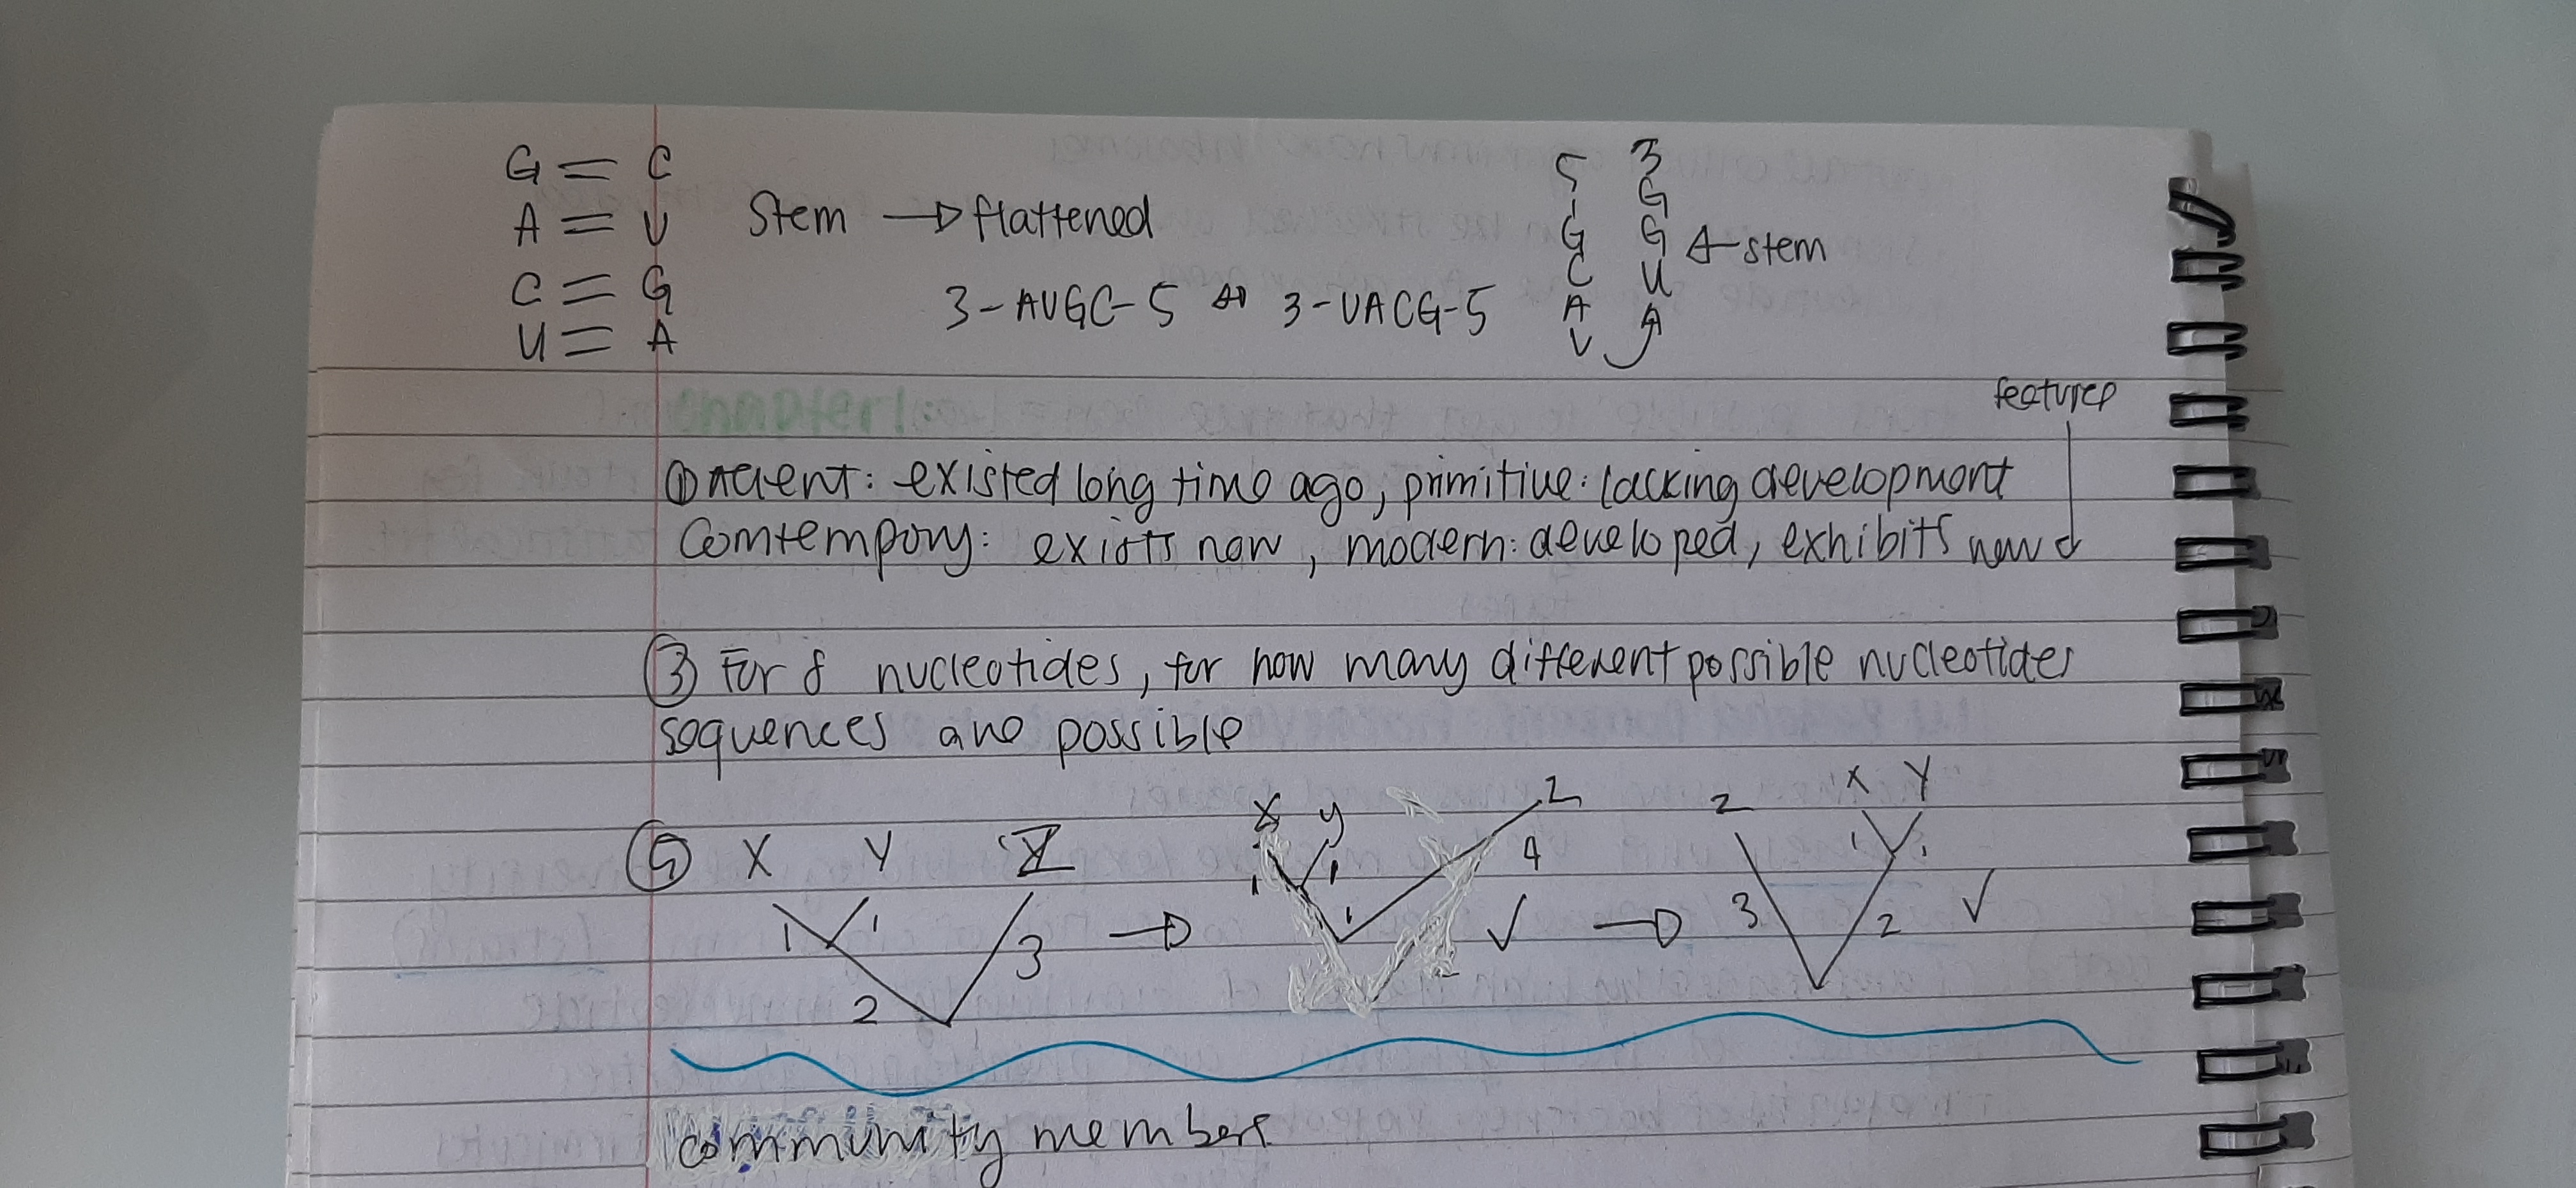 G = C
A = U
C = G
U = A
Stem → flattened
3-AUGC-5 ↔ 3-UACG-5
5 3
G
G G
C U
A A
U
← stem
features
① Ancient: existed long time ago, primitive: lacking development
Comtempory: exists now, modern: developed, exhibits new
③ For 8 nucleotides, for how many different possible nucleotides
sequences are possible
X Y Z
1 1
2 3
→
X y Z
1 1 4
1 ✓
→
Z X Y
1 1
3 2 ✓
community members